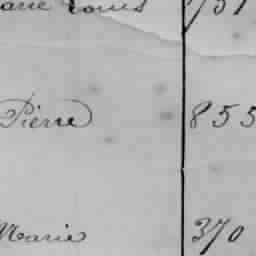 Marie Louis 751
Pierre 855
Marie 370